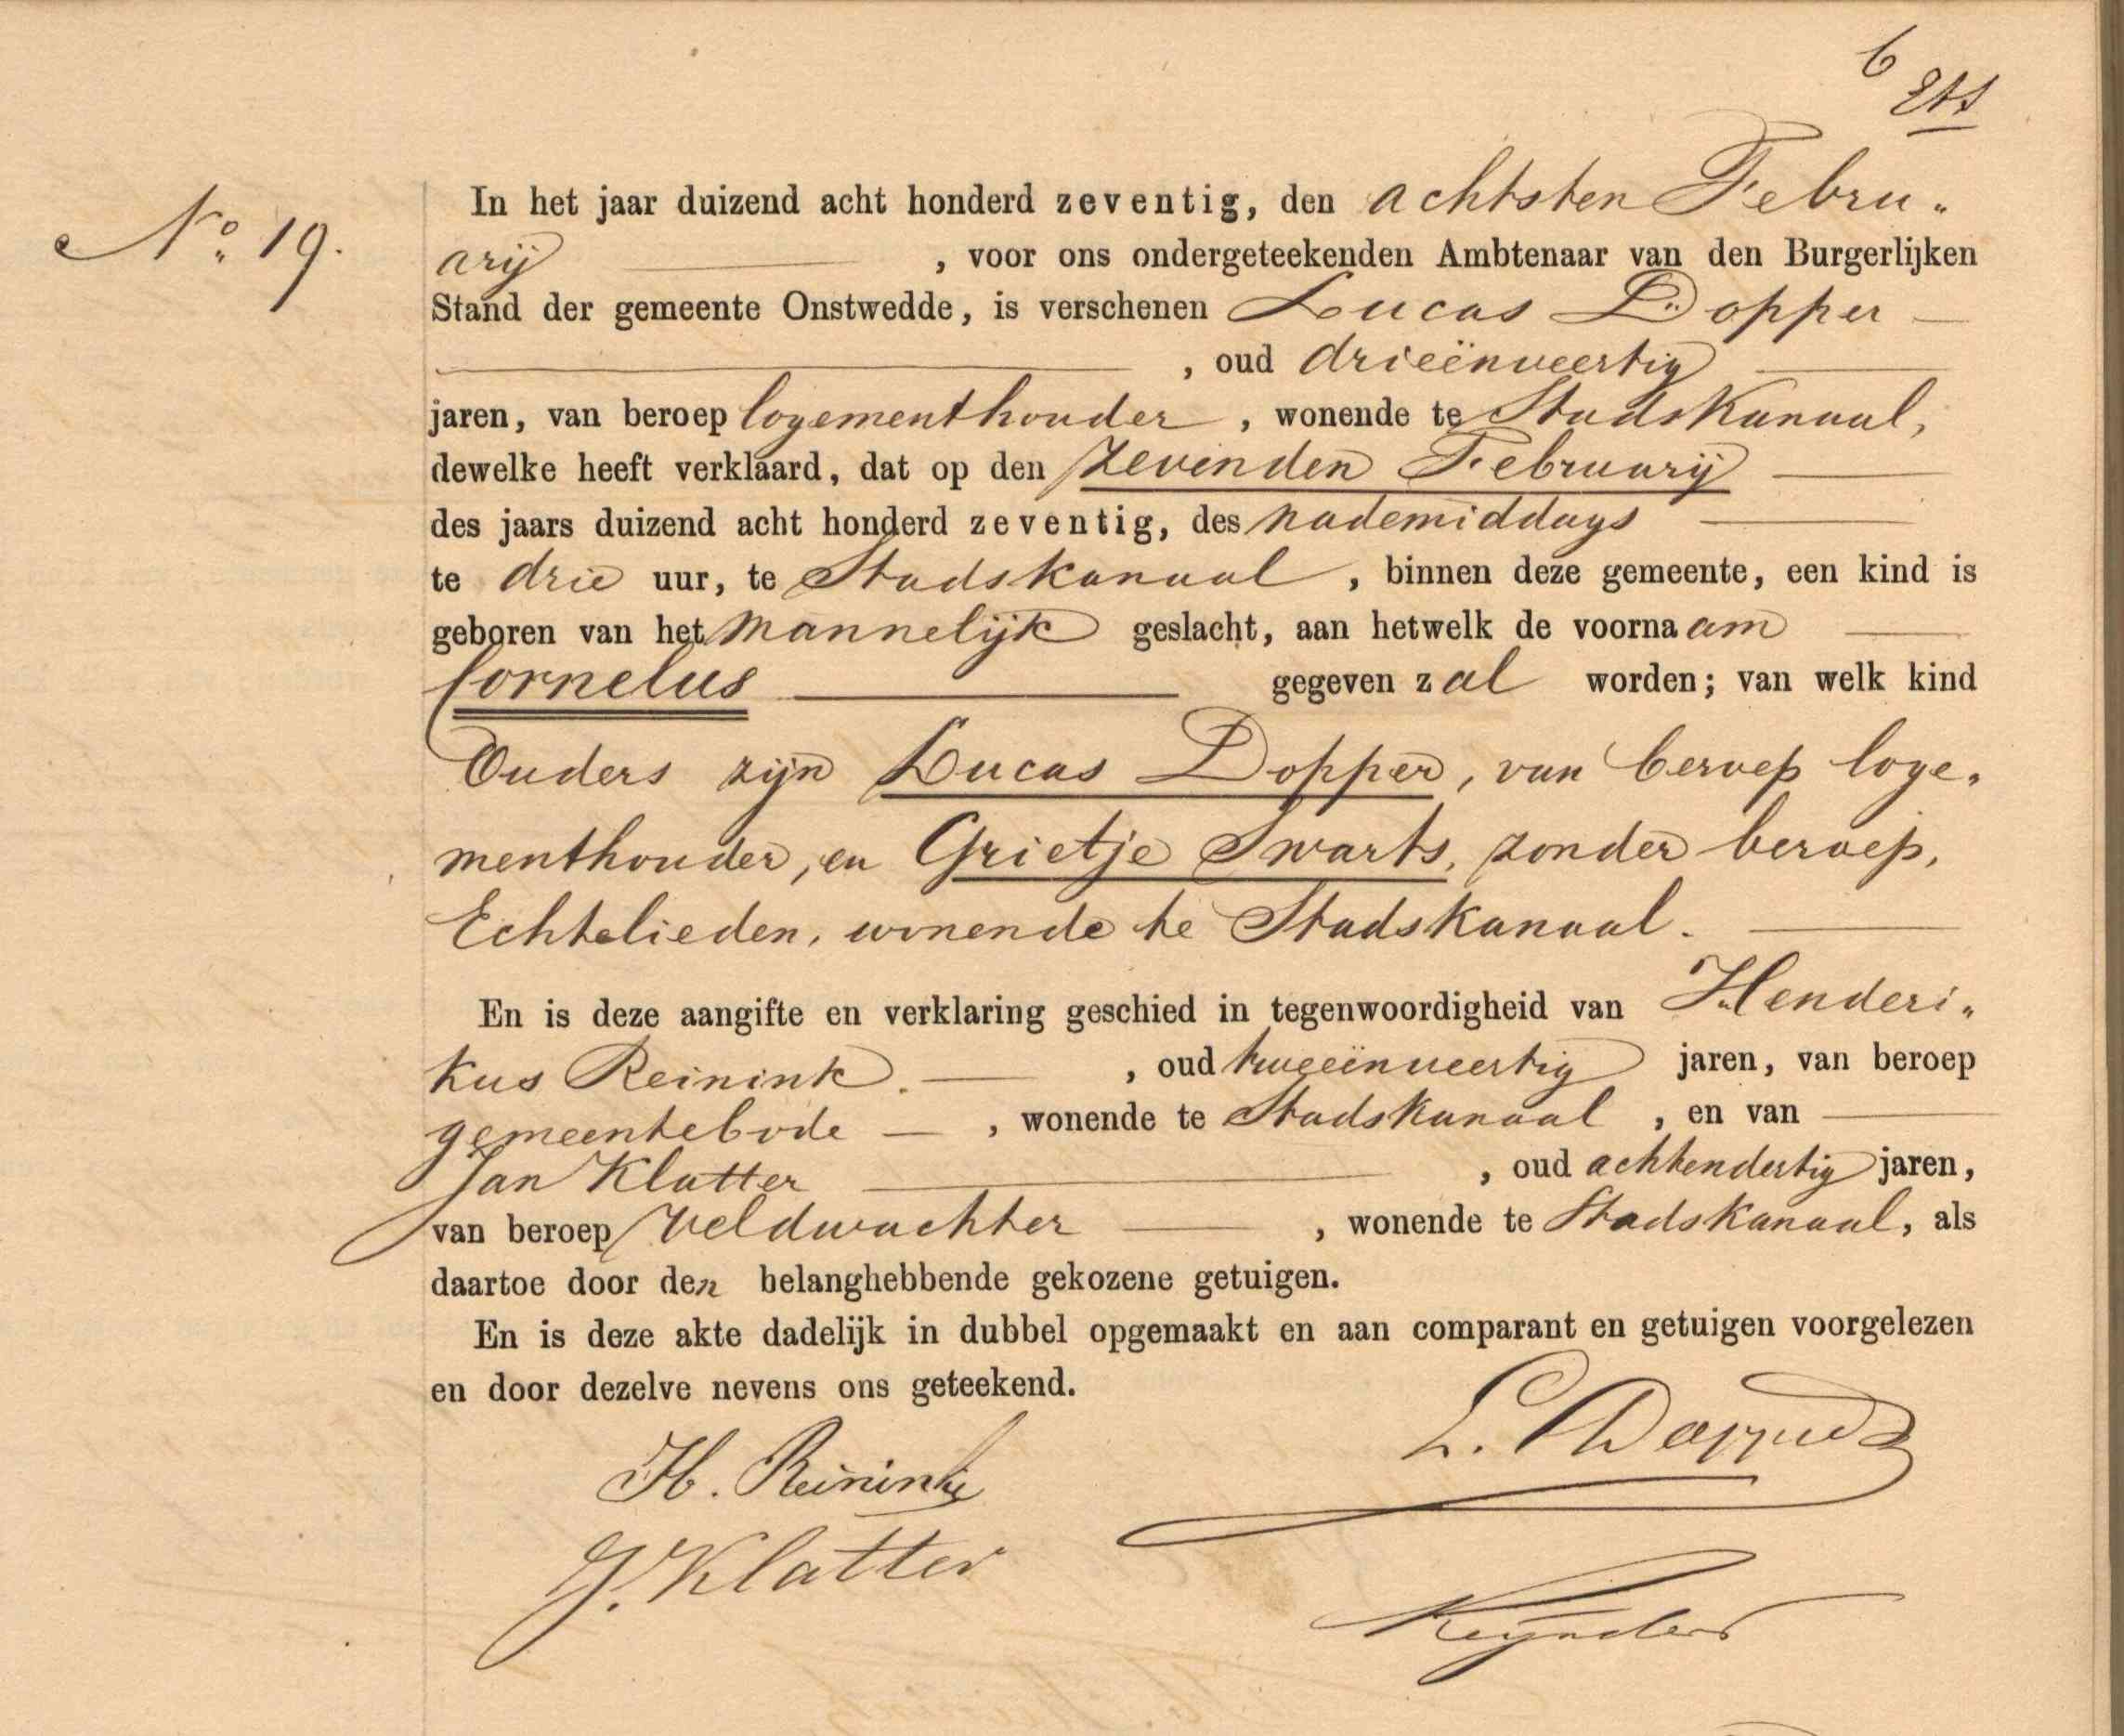 6
No. 19.
In het jaar duizend acht honderd zeventig, den achtsten Febru„
arij , voor ons ondergeteekenden Ambtenaar van den Burgerlijken
Stand der gemeente Onstwedde, is verschenen Lucas Dopper
, oud drieënveertig
jaren, van beroep logementhouder , wonende te Stadskanaal,
dewelke heeft verklaard, dat op den zevenden Februarij
des jaars duizend acht honderd zeventig, des nademiddags
te drie uur, te Stadskanaal , binnen deze gemeente, een kind is
geboren van het mannelijk geslacht, aan hetwelk de voornaam
Cornelus gegeven zal worden; van welk kind
Ouders zijn Lucas Dopper, van beroep loge„
menthouder, en Grietje Swarts, zonder beroep,
Echtelieden, wonende te Stadskanaal.
En is deze aangifte en verklaring geschied in tegenwoordigheid van Henderi„
kus Reinink. , oud tweeënveertig jaren, van beroep
gemeentebode , wonende te Stadskanaal , en van
Jan Klatter , oud achtendertig jaren,
van beroep veldwachter , wonende te Stadskanaal, als
daartoe door den belanghebbende gekozene getuigen.
En is deze akte dadelijk in dubbel opgemaakt en aan comparant en getuigen voorgelezen
en door dezelve nevens ons geteekend.
L. Dopper
H. Reinink
J. Klatter